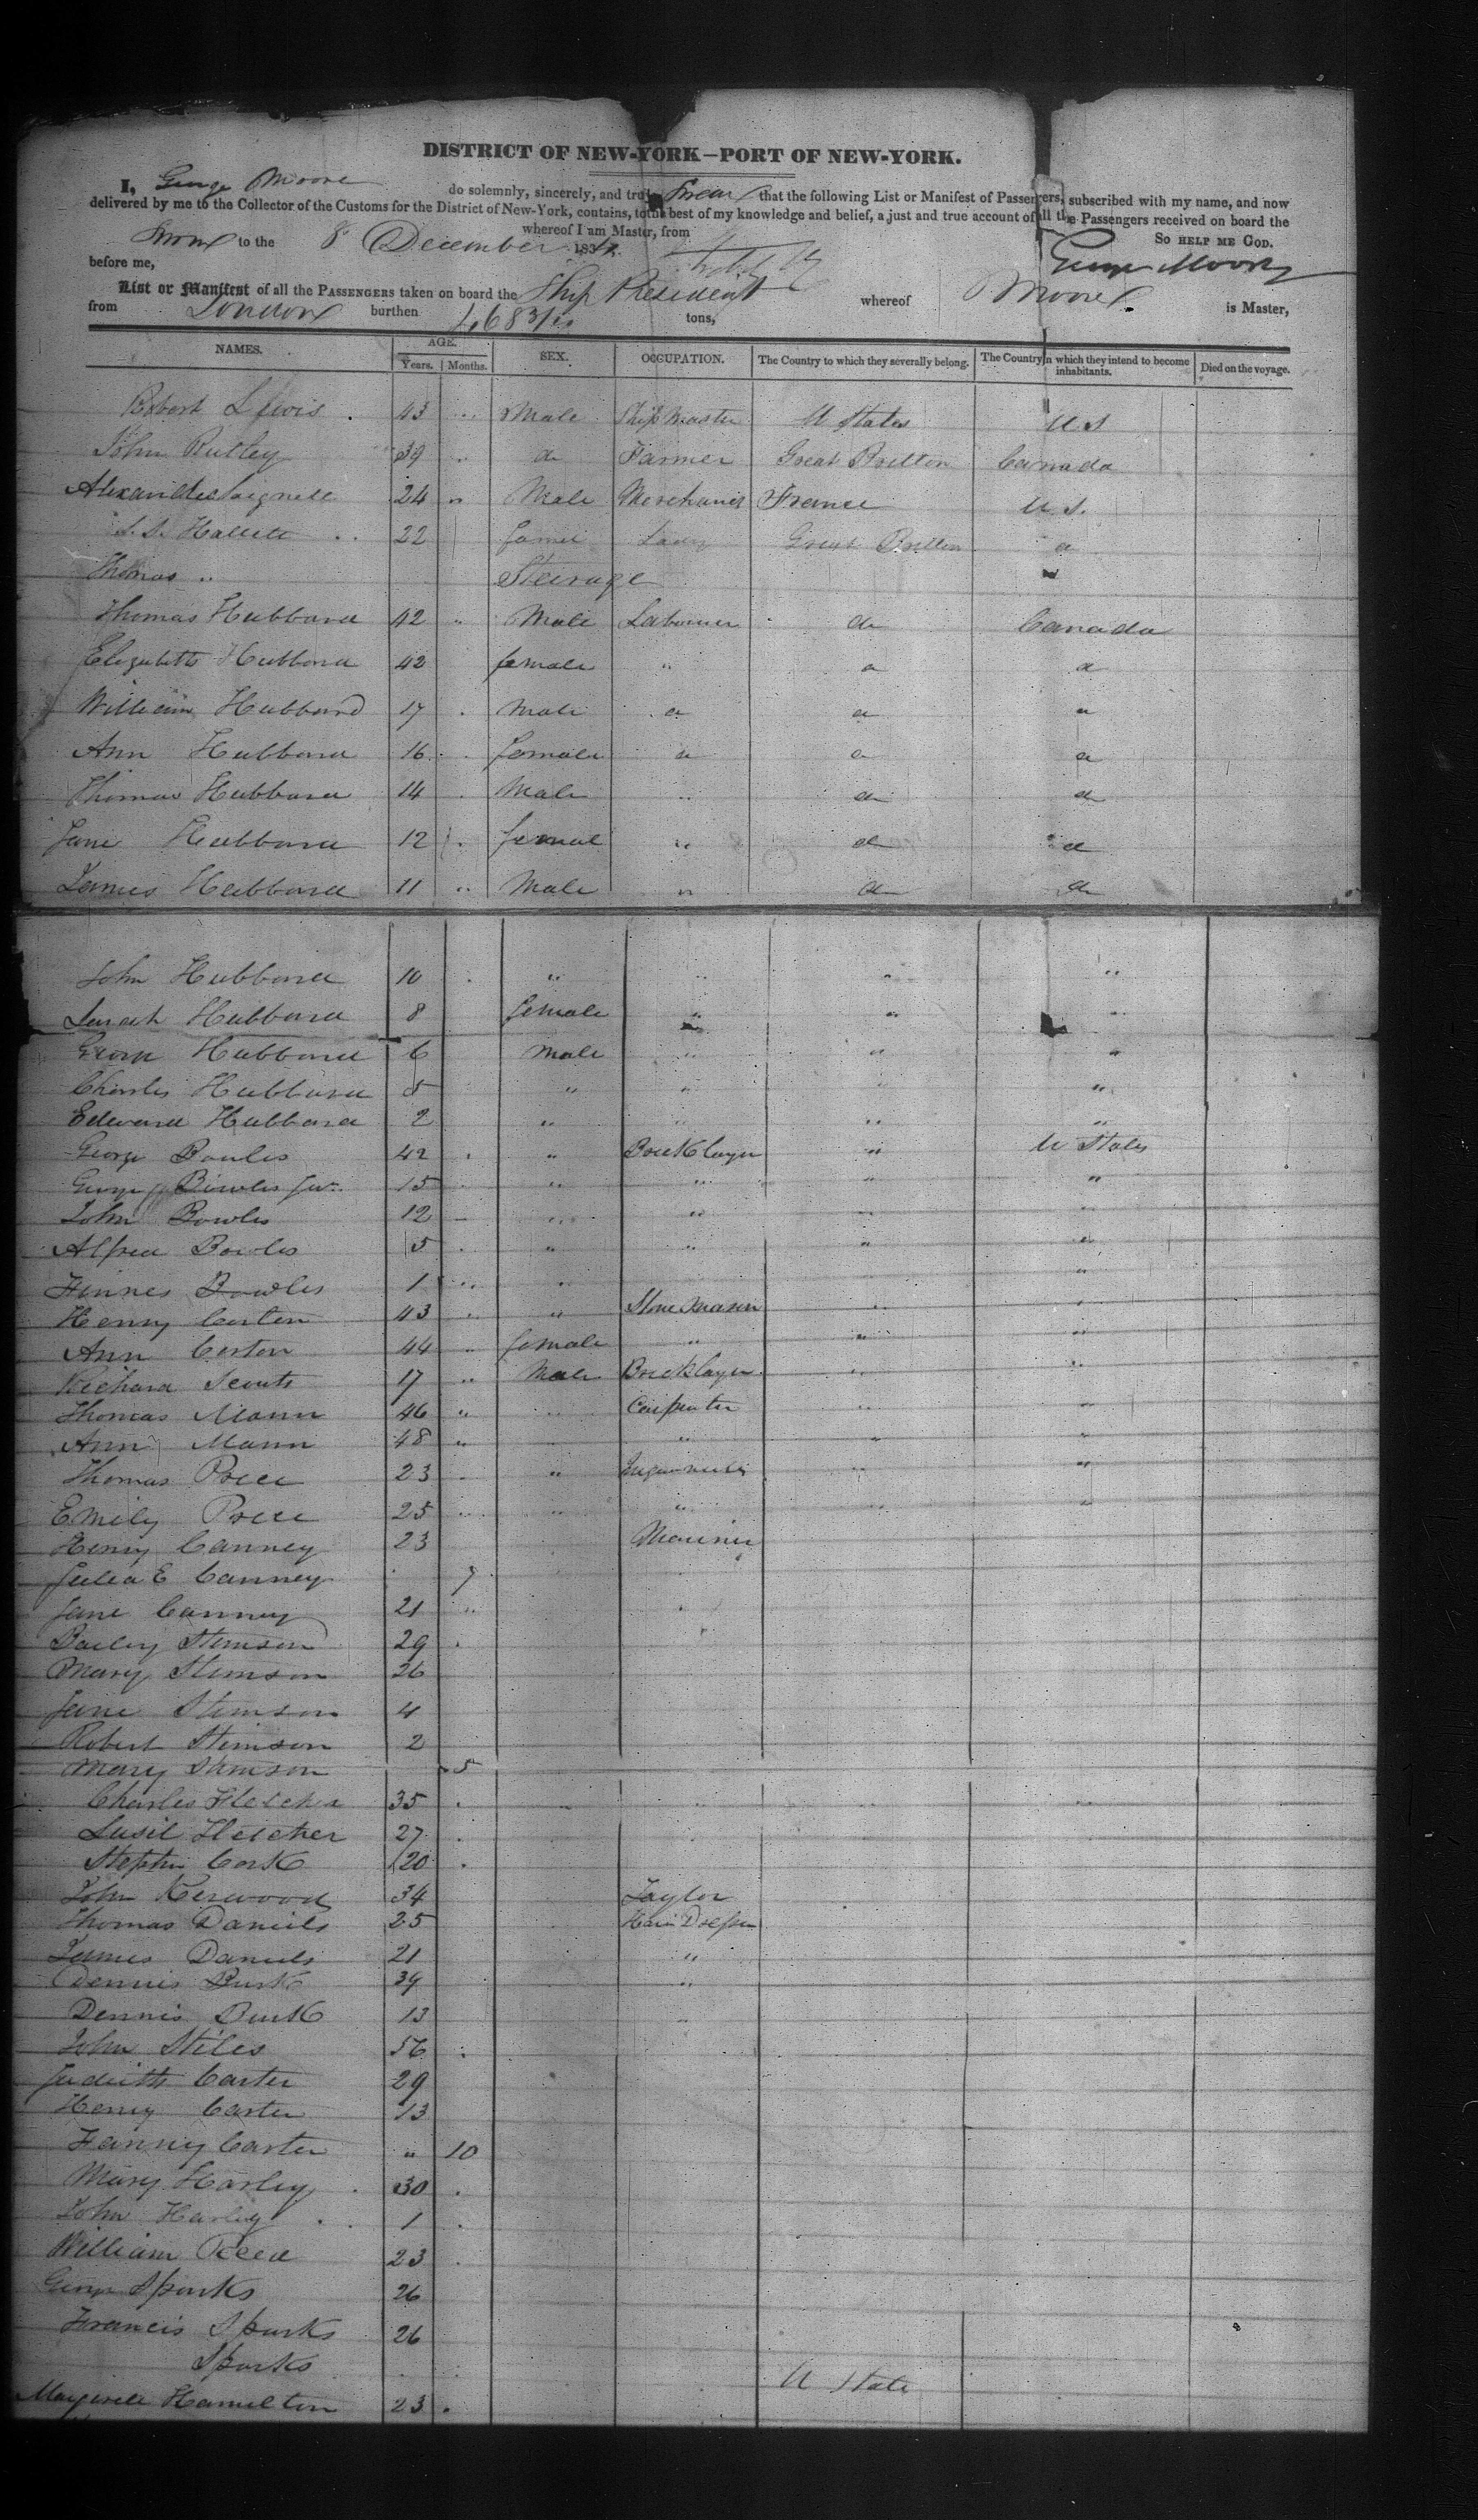 DISTRICT OF NEW-YORK—PORT OF NEW-YORK.
I, George Moore do solemnly, sincerely, and truly Swear that the following List or Manifest of Passengers, subscribed with my name, and now
delivered by me to the Collector of the Customs for the District of New-York, contains, to the best of my knowledge and belief, a just and true account of all the Passengers received on board the
whereof I am Master, from
Sworn to the 8 December 183 So HELP ME GOD.
before me, George Moore
List or Manifest of all the PASSENGERS taken on board the Ship President whereof Moore is Master,
from London burthen 468 tons,
NAMES. AGE. Years. Months. SEX. OCCUPATION. The Country to which they severally belong. The Country in which they intend to become inhabitants. Died on the voyage.
Robert L Lewis 43 " Male Ship Master U States U.S
John Rutley 39 " do Farmer Great Britton Canada
24 " Male Merchant France U.S.
S.S. Hallett 22 femel Lady Great Britton do
Thomas " Steirage
Thomas Hubbard 42 " Male Labourer do Canada
Elizabeth Hubbard 42 female " do do
William Hubbard 17 Male do do do
Ann Hubbard 16 female do do do
Thomas Hubbard 14 Male " do do
Jane Hubbard 12 femal " do do
James Hubbard 11 " Male " do do
John Hubbard 10 " " " "
Sarah Hubbard 8 female " " "
George Hubbard 6 Male " " "
Charles Hubbard 5 " " " "
Edward Hubbard 2 " " " "
George Bowles 42 " Bricklayer " U States
George Bowles Jur. 15 " " " "
John Bowles 12 " " " "
Alfred Bowles 5 " " " "
Bowles 1 " " "
Henry Carton 43 " " Stone Mason " "
Ann Carton 44 " female " " "
Richard Scouts 17 " Male Bricklayer " "
Thomas Mann 46 " " Carpenter " "
Ann Mann 48 " " " "
Thomas Price 23 " " "
Emily Price 25 " " " " "
Henry Canney 23 Mariner
Julia E Canney 7
Jane Canney 21 "
Bailey Stimson 29
Mary Stimson 26
Jane Stimson 4
Robert Stimson 2
Mary Stimson 5
Charles Fletcher 35 " " "
Fletcher 27
Stephen Cork 20
John Kerwood 34 Taylor
Thomas Daniels 25 Hair Dresser
James Daniels 21 "
Dennis Burk 39 "
Dennis Burk 13
John Stiles 56
Judith Carter 29
Henry Carter 13
Fanny Carter " 10
Mary Harley 30
John Harley 1
William Reed 23
George Sparks 26
Francis Sparks 26
Sparks
Hamilton 23 U State